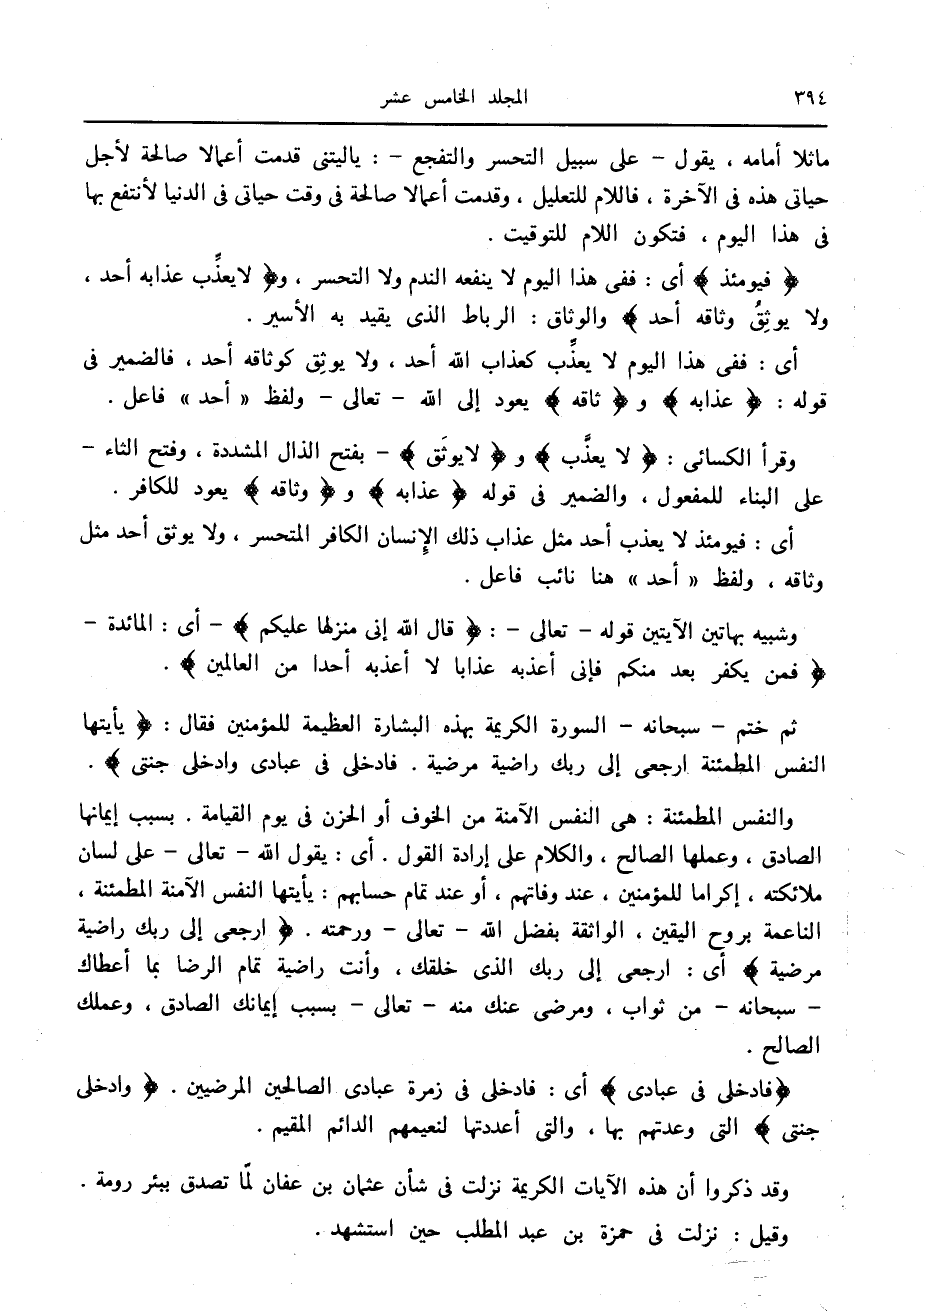 ٣٩٤ المجلد الخامس عشر
ماثلا أمامه ، يقول – على سبيل التحسر والتفجع – : ياليتنى قدمت أعمالا صالحة لأجل
حياتى هذه فى الآخرة ، فاللام للتعليل ، وقدمت أعمالا صالحة فى وقت حياتى فى الدنيا لأنتفع بها
فى هذا اليوم ، فتكون اللام للتوقيت .
﴿ فيومئذ ﴾ أى : ففى هذا اليوم لا ينفعه الندم ولا التحسر ، و﴿ لايعذِّب عذابه أحد ،
ولا يوثِقُ وثاقه أحد ﴾ والوثاق : الرباط الذى يقيد به الأسير .
أى : ففى هذا اليوم لا يعذِّب كعذاب الله أحد ، ولا يوثِق كوثاقه أحد ، فالضمير فى
قوله : ﴿ عذابه ﴾ و ﴿ ثاقه ﴾ يعود إلى الله – تعالى – ولفظ « أحد » فاعل .
وقرأ الكسائى : ﴿ لا يعذَّب ﴾ و ﴿ لايوثَق ﴾ – بفتح الذال المشددة ، وفتح الثاء –
على البناء للمفعول ، والضمير فى قوله ﴿ عذابه ﴾ و ﴿ وثاقه ﴾ يعود للكافر .
أى : فيومئذ لا يعذب أحد مثل عذاب ذلك الإِنسان الكافر المتحسر ، ولا يوثق أحد مثل
وثاقه ، ولفظ « أحد » هنا نائب فاعل .
وشبيه بهاتين الآيتين قوله – تعالى – : ﴿ قال الله إنى منزلها عليكم ﴾ – أى : المائدة –
﴿ فمن يكفر بعد منكم فإنى أعذبه عذابا لا أعذبه أحدا من العالمين ﴾ .
ثم ختم – سبحانه – السورة الكريمة بهذه البشارة العظيمة للمؤمنين فقال : ﴿ يأيتها
النفس المطمئنة ارجعى إلى ربك راضية مرضية . فادخلى فى عبادى وادخلى جنتى ﴾ .
والنفس المطمئنة : هى النفس الآمنة من الخوف أو الحزن فى يوم القيامة . بسبب إيمانها
الصادق ، وعملها الصالح ، والكلام على إرادة القول . أى : يقول الله – تعالى – على لسان
ملائكته ، إكراما للمؤمنين ، عند وفاتهم ، أو عند تمام حسابهم : يأيتها النفس الآمنة المطمئنة ،
الناعمة بروح اليقين ، الواثقة بفضل الله – تعالى – ورحمته . ﴿ ارجعى إلى ربك راضية
مرضية ﴾ أى : ارجعى إلى ربك الذى خلقك ، وأنت راضية تمام الرضا بما أعطاك
– سبحانه – من ثواب ، ومرضى عنك منه – تعالى – بسبب إيمانك الصادق ، وعملك
الصالح .
﴿فادخلى فى عبادى ﴾ أى : فادخلى فى زمرة عبادى الصالحين المرضيين . ﴿ وادخلى
جنتى ﴾ التى وعدتهم بها ، والتى أعددتها لنعيمهم الدائم المقيم .
وقد ذكروا أن هذه الآيات الكريمة نزلت فى شأن عثمان بن عفان لمّا تصدق ببئر رومة .
وقيل : نزلت فى حمزة بن عبد المطلب حين استشهد .